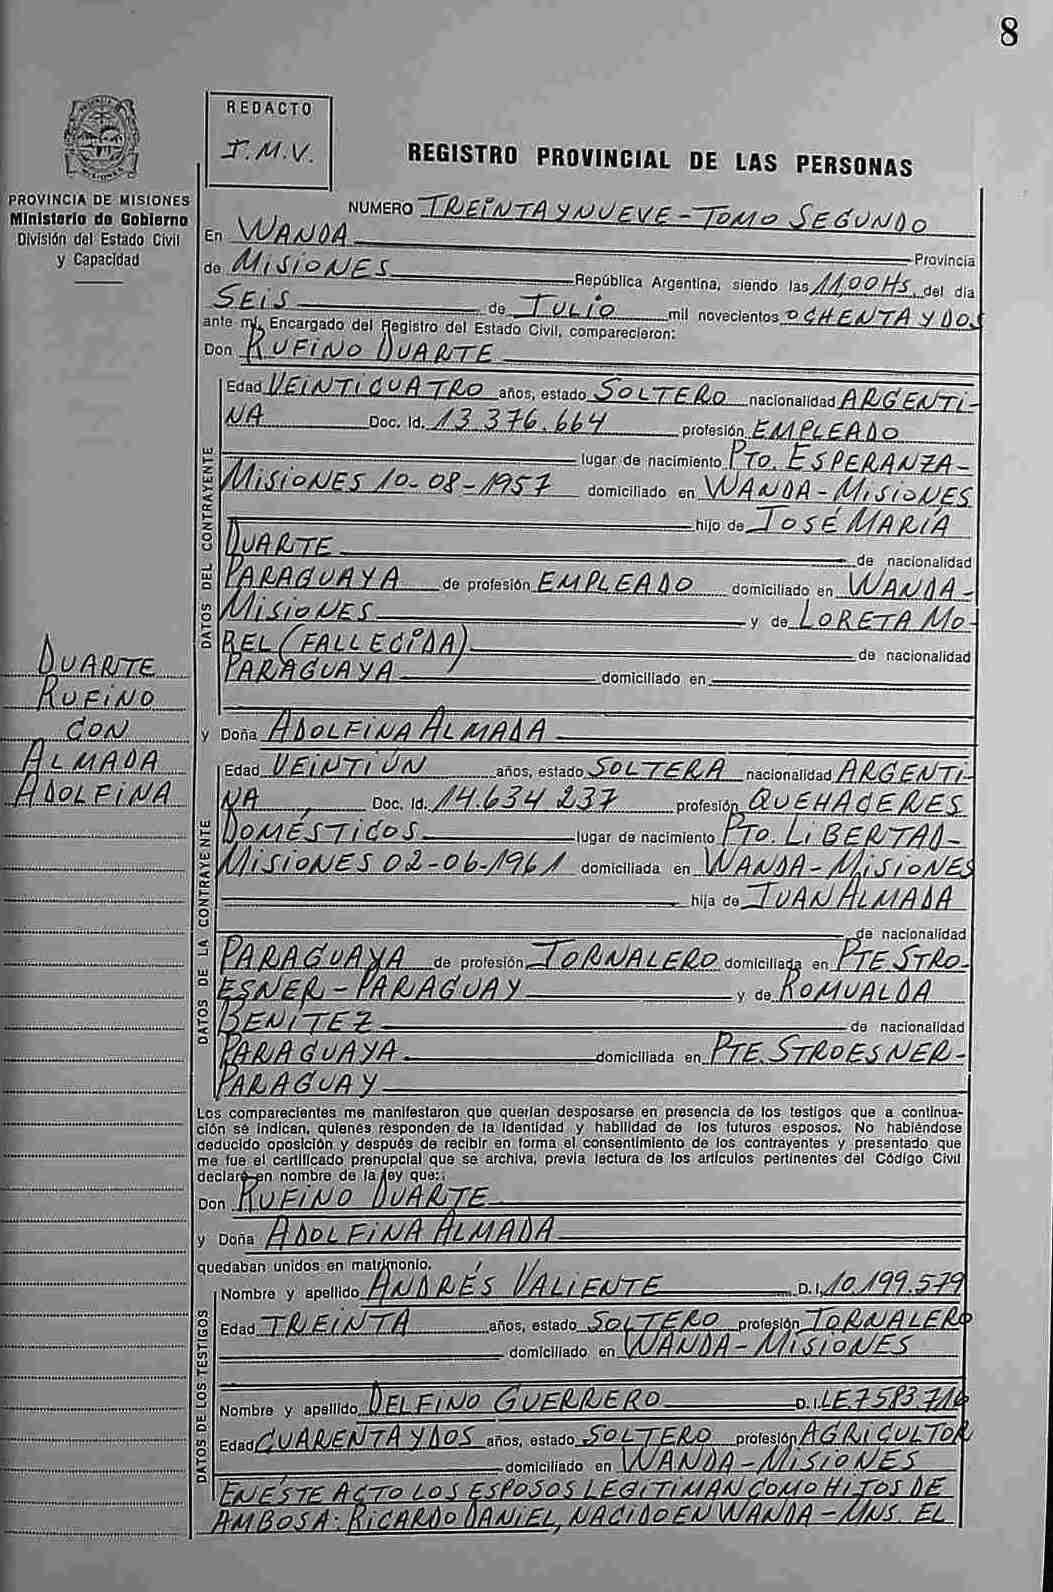 8
REDACTO
I.M.V.
REGISTRO PROVINCIAL DE LAS PERSONAS
PROVINCIA DE MISIONES
Ministerio de Gobierno
División del Estado Civil
y Capacidad
NUMERO TREINTA Y NUEVE - TOMO SEGUNDO
En WANDA Provincia
de MISIONES República Argentina, siendo las 11,00 Hs. del día
SEIS de JULIO mil novecientos OCHENTA Y DOS
ante mí, Encargado del Registro del Estado Civil, comparecieron:
Don RUFINO DUARTE
DATOS DEL CONTRAYENTE
Edad VEINTICUATRO años, estado SOLTERO nacionalidad ARGENTI-
NA Doc. Id. 13.376.664 profesión EMPLEADO
lugar de nacimiento PTO. ESPERANZA-
MISIONES 10-08-1957 domiciliado en WANDA - MISIONES
hijo de JOSÉ MARIA
DUARTE de nacionalidad
PARAGUAYA de profesión EMPLEADO domiciliado en WANDA-
MISIONES y de LORETA MO-
REL (FALLECIDA) de nacionalidad
PARAGUAYA domiciliado en
DUARTE
RUFINO
CON
ALMADA
ADOLFINA
y Doña ADOLFINA ALMADA
DATOS DE LA CONTRAYENTE
Edad VEINTIÚN años, estado SOLTERA nacionalidad ARGENTI-
NA Doc. Id. 14.634 237 profesión QUEHACERES
DOMÉSTICOS lugar de nacimiento PTO. LIBERTAD-
MISIONES 02-06-1961 domiciliada en WANDA - MISIONES
hija de JUAN ALMADA
de nacionalidad
PARAGUAYA de profesión JORNALERO domiciliada en PTE STRO-
ESNER - PARAGUAY y de ROMUALDA
BENÍTEZ de nacionalidad
PARAGUAYA domiciliada en PTE. STROESNER-
PARAGUAY
Los comparecientes me manifestaron que querían desposarse en presencia de los testigos que a continua-
ción se indican, quienes responden de la identidad y habilidad de los futuros esposos. No habiéndose
deducido oposición y después de recibir en forma el consentimiento de los contrayentes y presentado que
me fue el certificado prenupcial que se archiva, previa lectura de los artículos pertinentes del Código Civil
declaré en nombre de la ley que:
Don RUFINO DUARTE
y Doña ADOLFINA ALMADA
quedaban unidos en matrimonio.
DATOS DE LOS TESTIGOS
Nombre y apellido ANDRÉS VALIENTE D.I. 10.199.579
Edad TREINTA años, estado SOLTERO profesión JORNALERO
domiciliado en WANDA - MISIONES
Nombre y apellido DELFINO GUERRERO D.I. LE.7583.716
Edad CUARENTA Y DOS años, estado SOLTERO profesión AGRICULTOR
domiciliado en WANDA - MISIONES
EN ÉSTE ACTO LOS ESPOSOS LEGITIMAN COMO HIJOS DE
AMBOS A: RICARDO DANIEL, NACIDO EN WANDA - MNS. EL